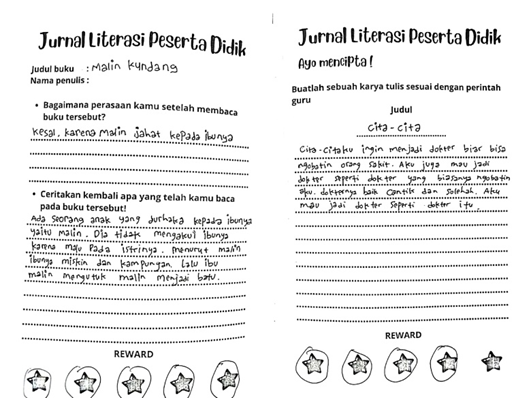 Jurnal Literasi Peserta Didik
Judul buku : Malin Kundang
Nama penulis :
• Bagaimana perasaan kamu setelah membaca
buku tersebut?
kesal, karena Malin jahat kepada ibunya
• Ceritakan kembali apa yang telah kamu baca
pada buku tersebut!
Ada seorang anak yang durhaka kepada ibunya
yaitu malin. Dia tidak mengakui ibunya
karena malu pada istrinya. menurut malin
ibunya miskin dan kampungan. Lalu ibu
malin mengutuk malin menjadi batu.
REWARD
Jurnal Literasi Peserta Didik
Ayo mencipta!
Buatlah sebuah karya tulis sesuai dengan perintah
guru
Judul
cita-cita
Cita-citaku ingin menjadi dokter biar bisa
ngobatin orang sakit. Aku juga mau jadi
dokter seperti dokter yang biasanya ngobatin
aku. dokternya baik cantik dan solehah. Aku
mau jadi dokter seperti dokter itu
REWARD